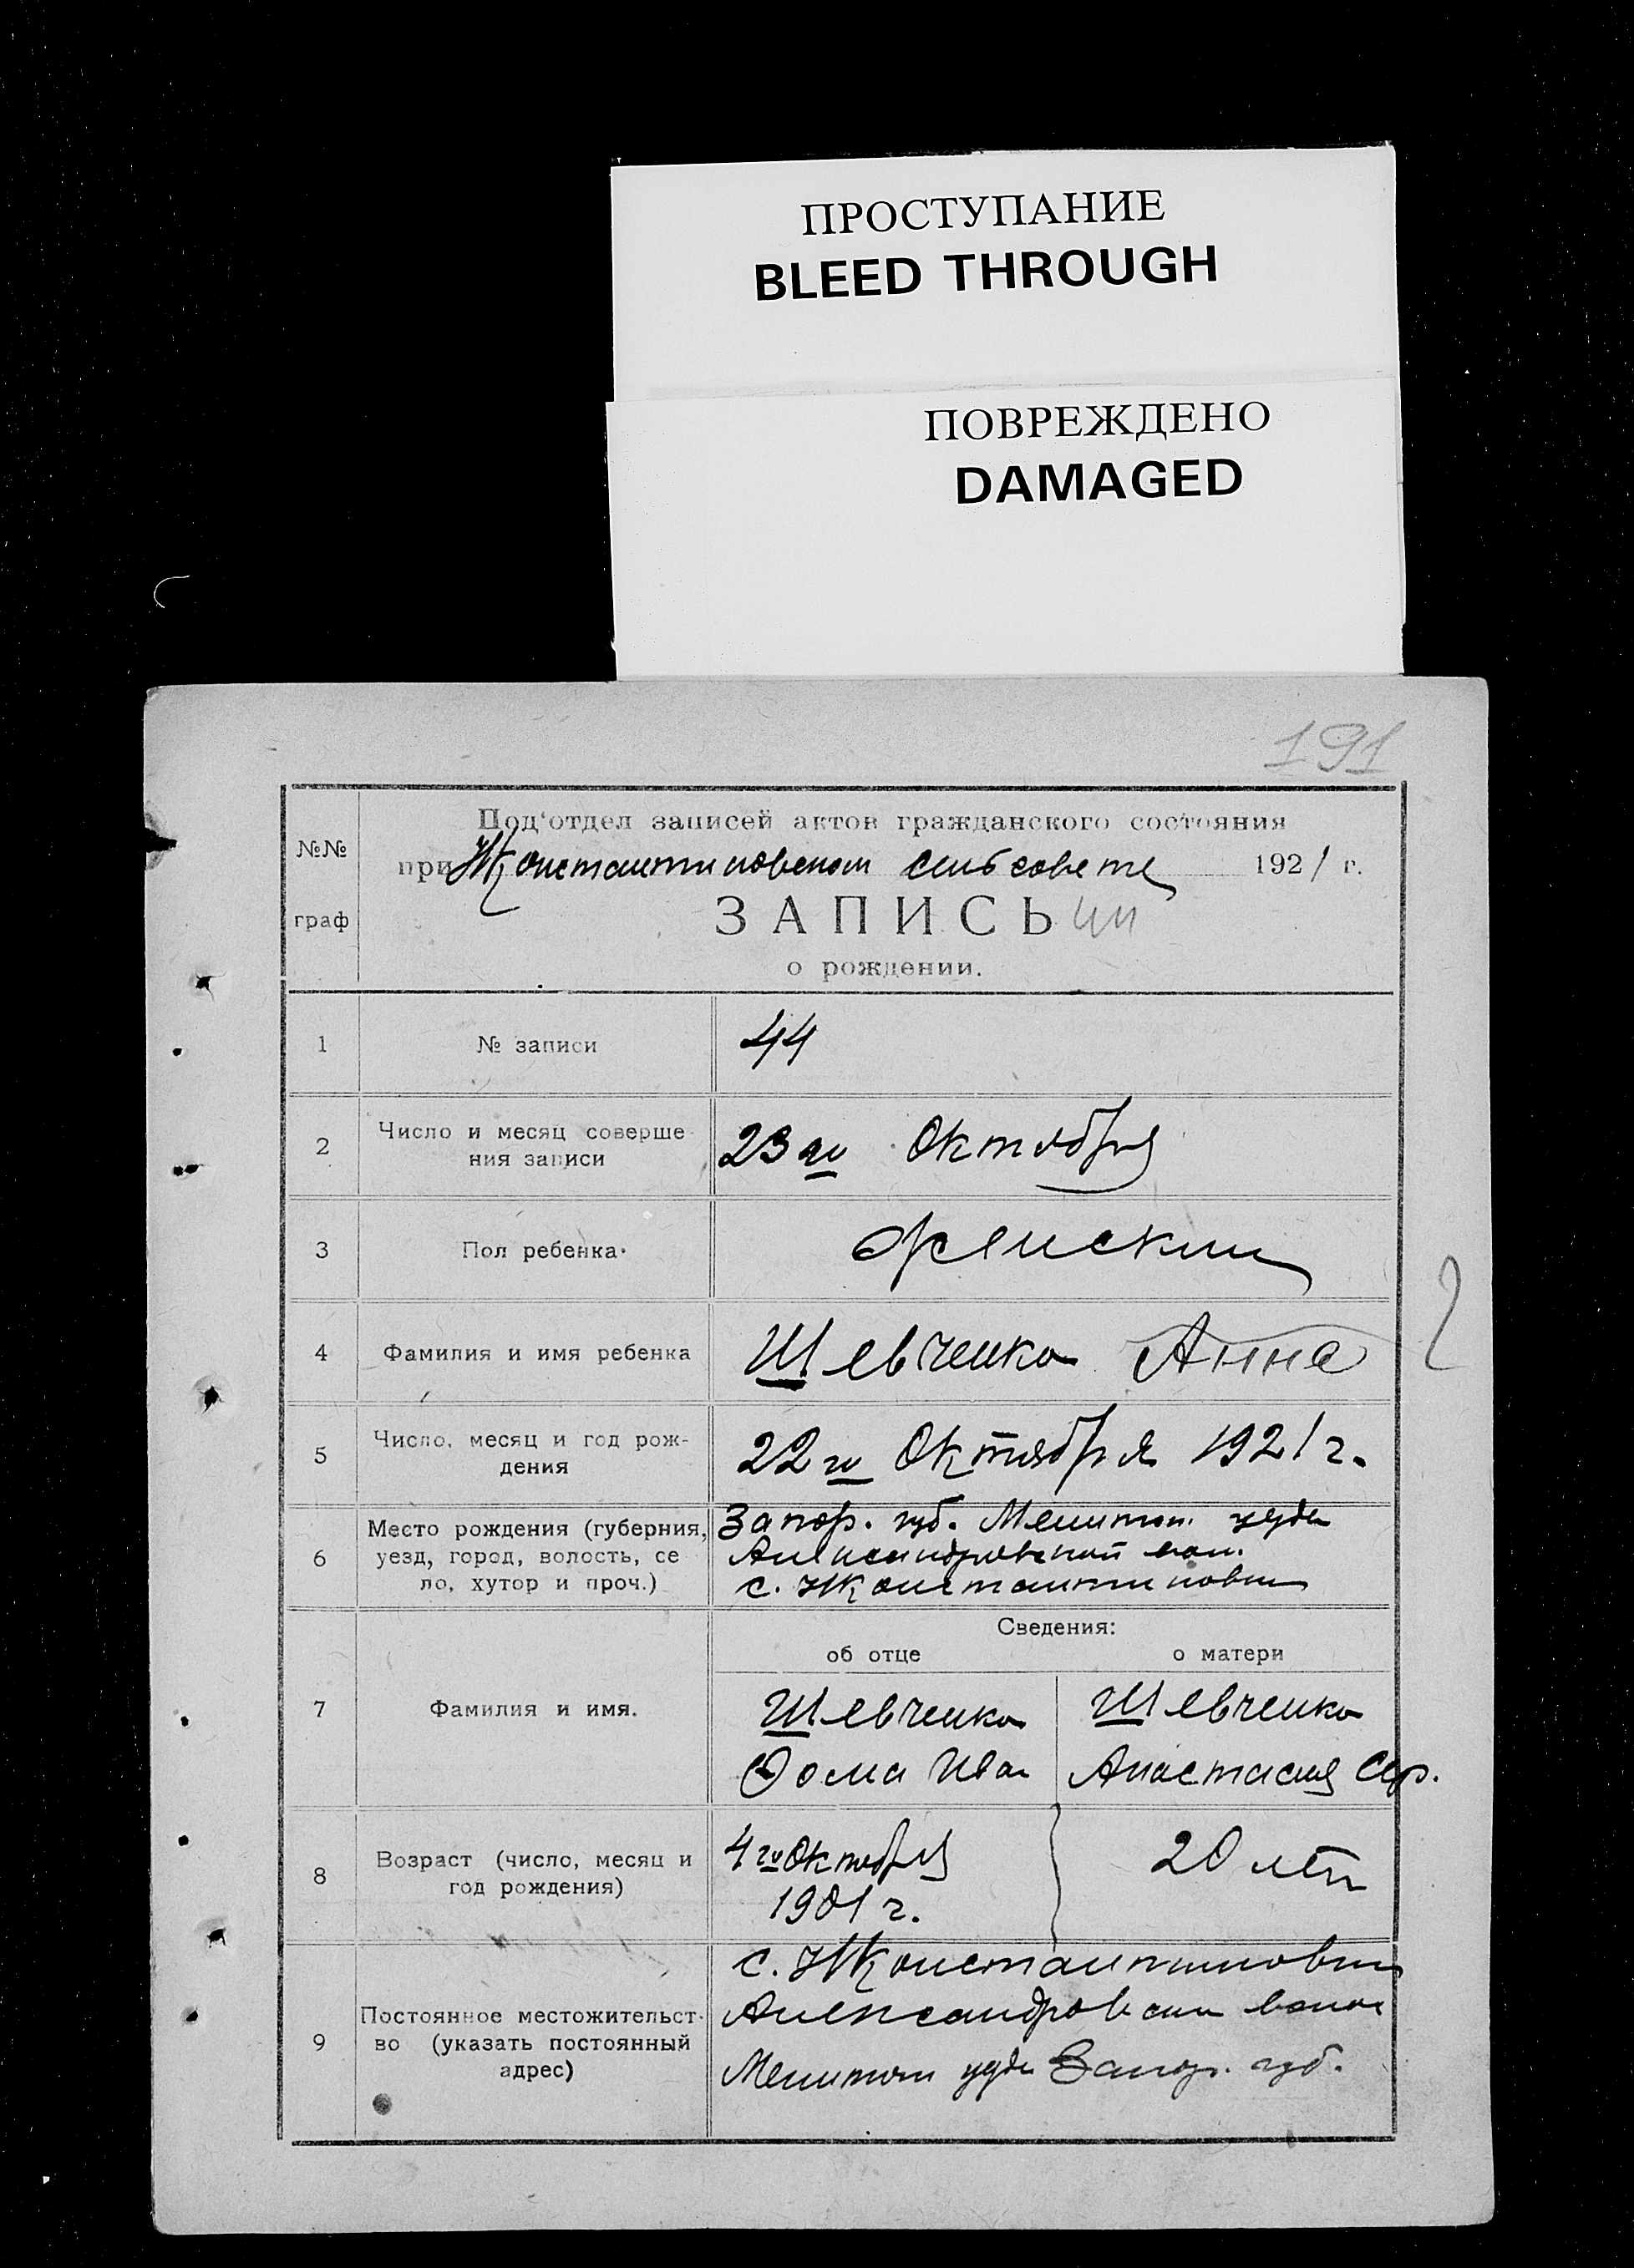 ПРОСТУПАНИЕ
BLEED THROUGH
ПОВРЕЖДЕНО
DAMAGED
191
№№
граф
Под'отдел записей актов гражданского состояния
при Константиновском сельсовете 1921 г.
ЗАПИСЬ
о рождении.
1 № записи 44
2 Число и месяц соверше-
ния записи 23го Октября
3 Пол ребенка женский
4 Фамилия и имя ребенка Шевченко Анна
5 Число, месяц и год рож-
дения 22го Октября 1921 г.
6 Место рождения (губерния,
уезд, город, волость, се
ло, хутор и проч.)
Запор. губ. Мелитоп. уезда
Александровской вол.
с. Константиновки
Сведения:
об отце о матери
7 Фамилия и имя.
Шевченко Шевченко
Фома Иван Анастасия Сер.
8 Возраст (число, месяц и
год рождения)
4го Октября 20 лет
1901 г.
9 Постоянное местожительст-
во (указать постоянный
адрес)
с. Константиновки
Александровской волос
Мелитоп уезда Запор. губ.